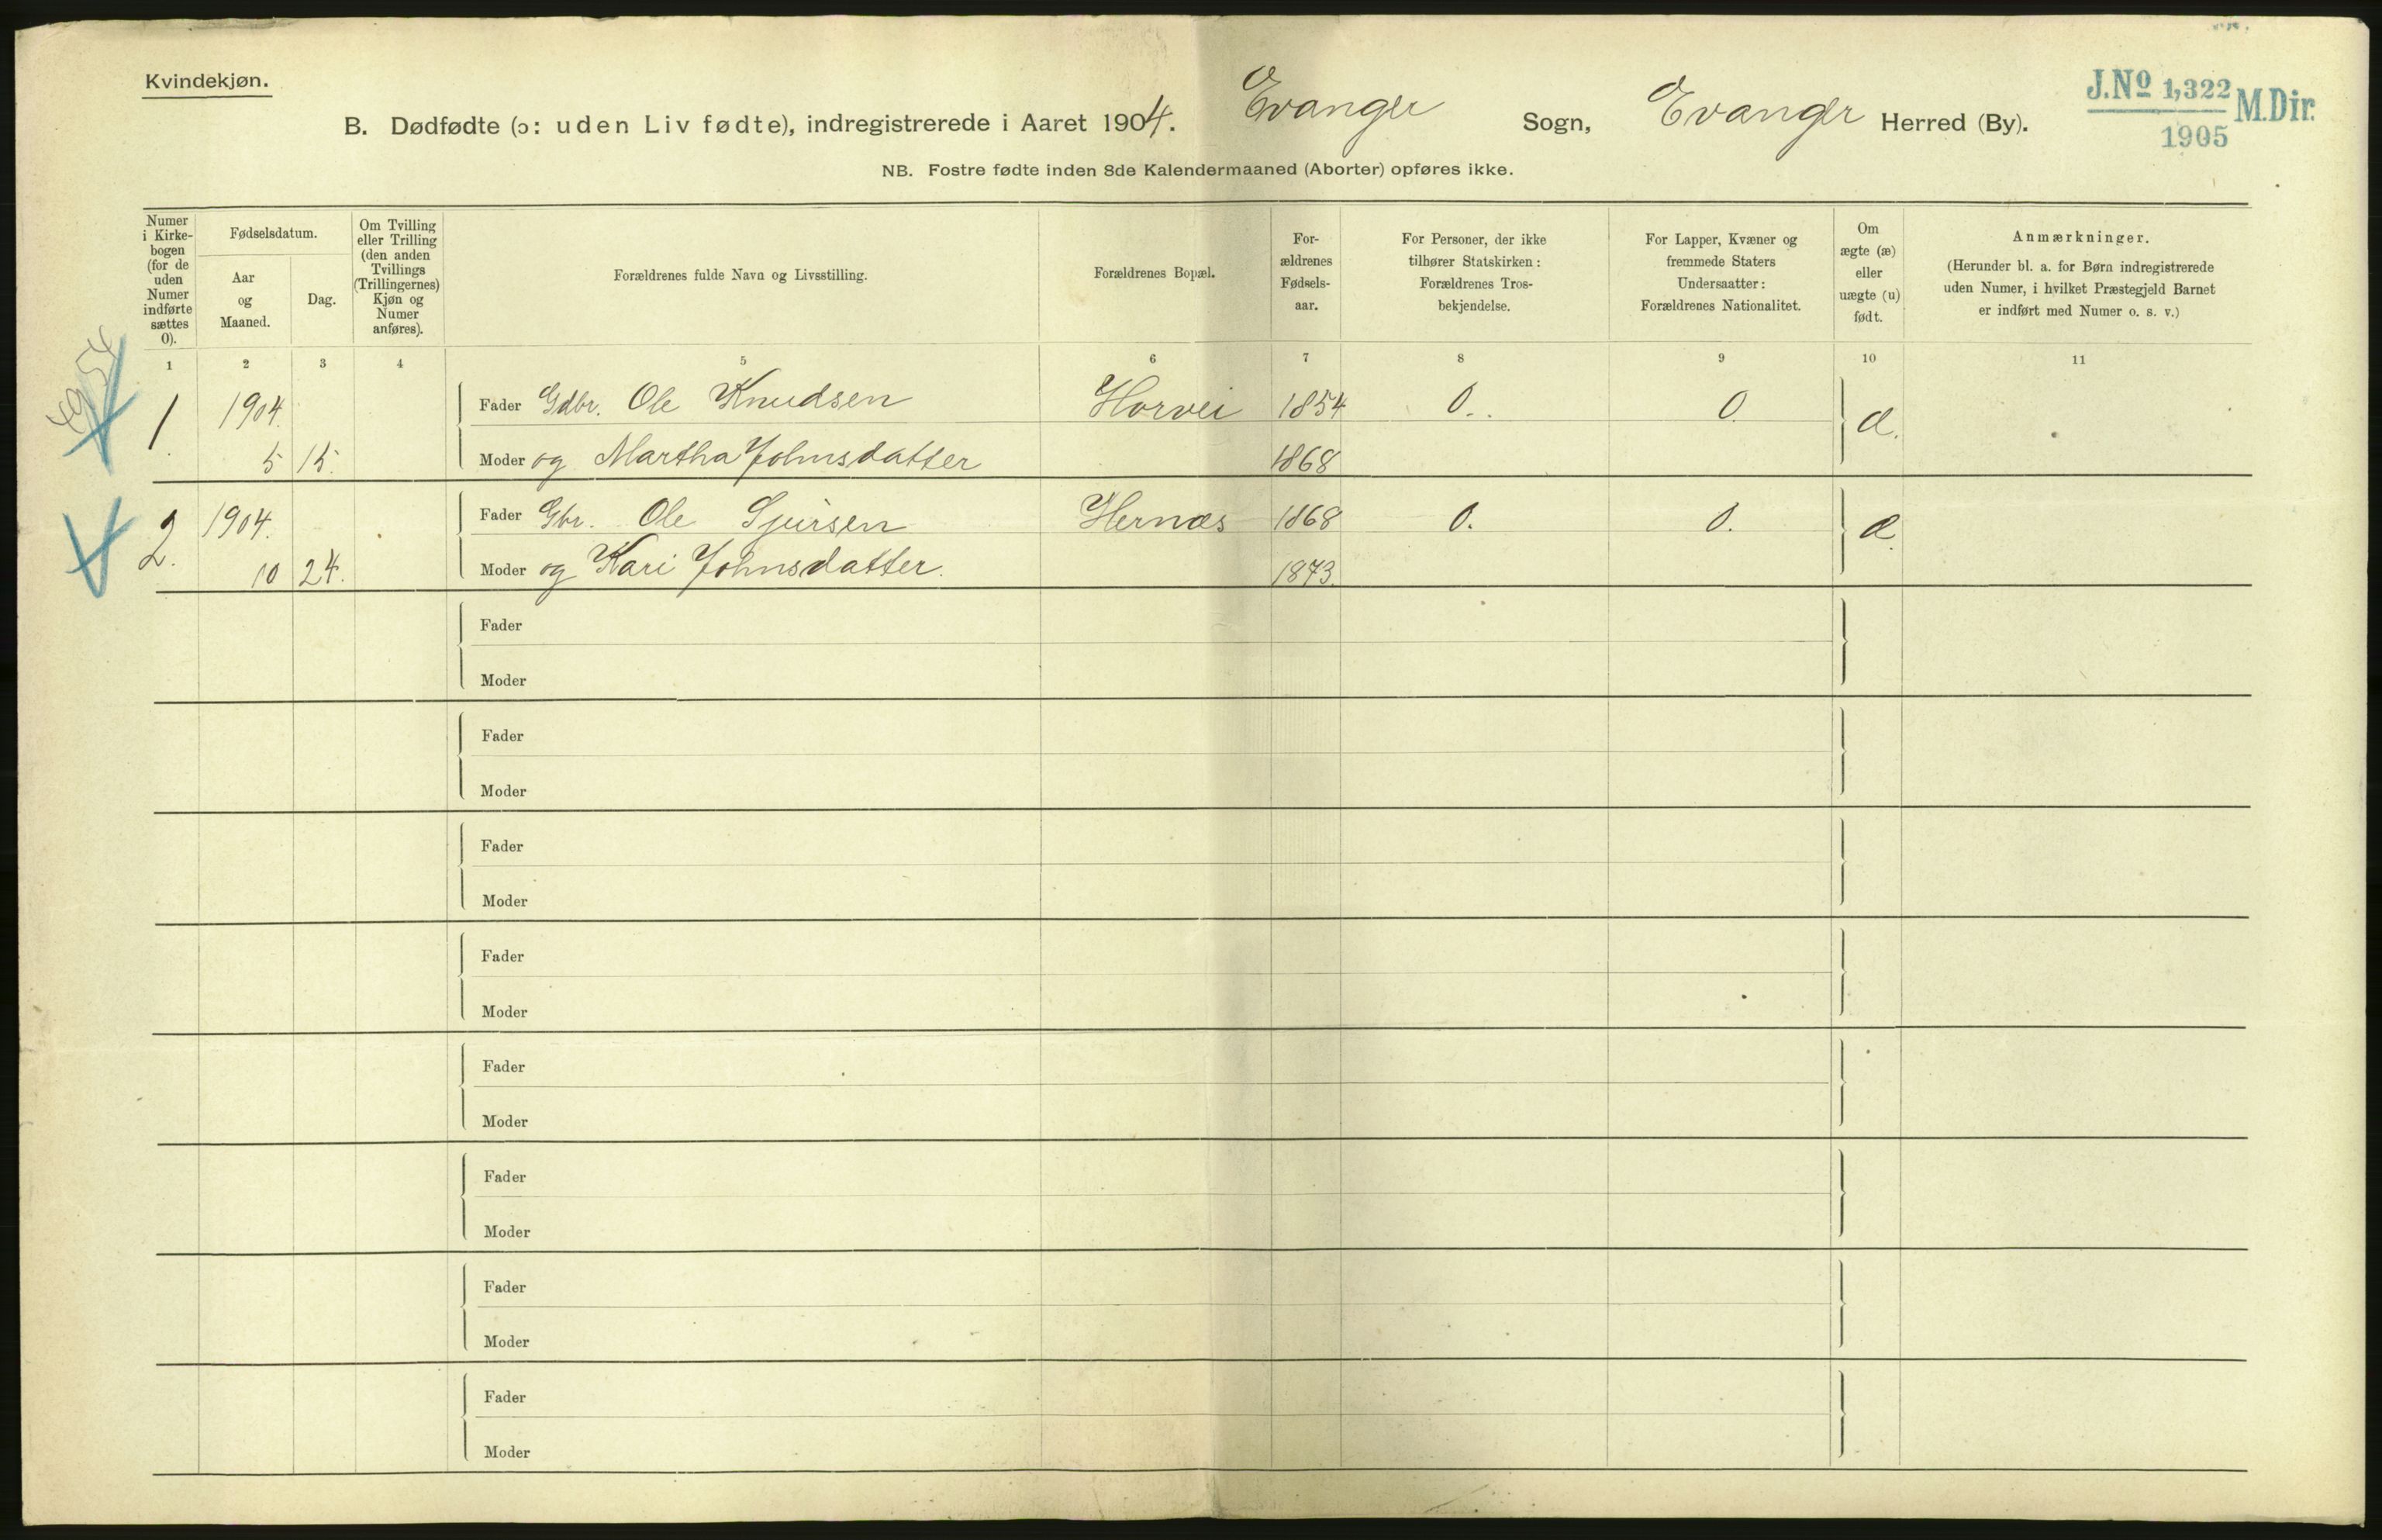 Kvindekjøn.
B. Dødfødte (ɔ: uden Liv fødte), indregistrerede i Aaret 1904. Evanger Sogn, Evanger Herred (By).
J.Nº 1,322 M.Dir.
1905
NB. Fostre fødte inden 8de Kalendermaaned (Aborter) opføres ikke.
Numer
i Kirke-
bogen
(for de
uden
Numer
indførte
sættes
0).
Fødselsdatum.
Aar
og
Maaned.
Dag.
Om Tvilling
eller Trilling
(den anden
Tvillings
(Trillingernes)
Kjøn og
Numer
anføres).
Forældrenes fulde Navn og Livsstilling.
Forældrenes Bopæl.
For-
ældrenes
Fødsels-
aar.
For Personer, der ikke
tilhører Statskirken:
Forældrenes Tros-
bekjendelse.
For Lapper, Kvæner og
fremmede Staters
Undersaatter:
Forældrenes Nationalitet.
Om
ægte (æ)
eller
uægte (u)
født.
Anmærkninger.
(Herunder bl. a. for Børn indregistrerede
uden Numer, i hvilket Præstegjeld Barnet
er indført med Numer o. s. v.)
1 2 3 4 5 6 7 8 9 10 11
1 1904. Fader Gdbr. Ole Knudsen Horvei 1854 0. 0 æ.
5 15. Moder og Martha Johnsdatter 1868
2. 1904. Fader Gbr. Ole Sjursen Hernæs 1868 0. 0. æ.
10 24. Moder og Kari Johnsdatter. 1873.
Fader
Moder
Fader
Moder
Fader
Moder
Fader
Moder
Fader
Moder
Fader
Moder
Fader
Moder
Fader
Moder